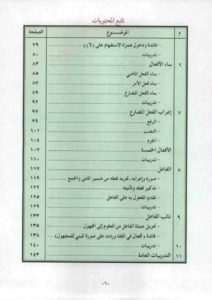 تابع المحتويات
م الموضـــــوع الصفحة
- فائدة ودخول همزة الاستفهام على (لا) ٧٩
- تدريبات ٨٠
٦ بناء الأفعال ٨٣
- بناء الفعل الماضي ٨٥
- بناء فعل الأمر ٨٧
- بناء الفعل المضارع ٨٩
- تدريبات ٩١
٧ إعراب الفعل المضارع
- الرفع ٩٩
- النصب ١٠١
- الجزم ١٠٤
- تدريبات
الأفعال الخمسة ١١٦
- تدريبات
٨ الفاعل
- صوره وإعرابه، تجريد فعله من ضمير المثنى والجمع
- تذكير فعله وتأنيثه
- تقدم المفعول به على الفاعل
- تدريبات
٩ نائب الفاعل ١٣٣
- تحويل جملة الفاعل من المعلوم إلى المجهول ١٣٥
- فائدة (أفعال في اللغة وردت على صورة المبني للمجهول) ١٣٨
١٠ - تدريبات ١٤٠
١١ التدريبات العامة ١٤٣